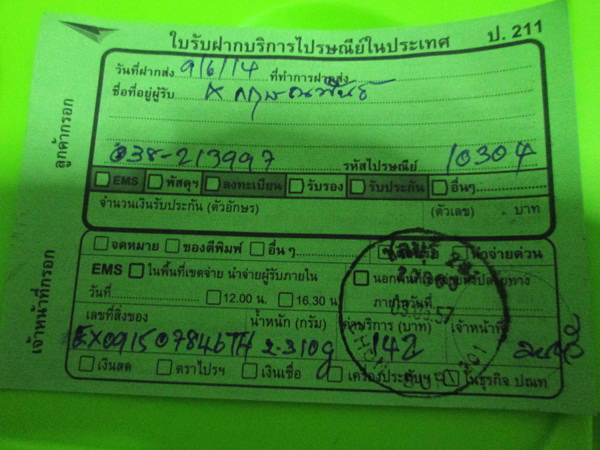 ใบรับฝากบริการไปรษณีย์ในประเทศ ป. 211
วันที่ฝากส่ง 9/6/14 ที่ทำการฝากส่ง
ชื่อที่อยู่ผู้รับ
038-213997 รหัสไปรษณีย์ 10304
EMS พัสดุฯ ลงทะเบียน รับรอง รับประกัน อื่นๆ
จำนวนเงินรับประกัน (ตัวอักษร) (ตัวเลข) บาท
ลูกค้ากรอก
จดหมาย ของตีพิมพ์ อื่น ๆ นำจ่ายด่วน
EMS ในพื้นที่เขตจ่าย นำจ่ายผู้รับภายใน
วันที่ 12.00 น. 16.30 น. ภายในวันที่
เลขที่สิ่งของ น้ำหนัก (กรัม) ค่าบริการ (บาท) เจ้าหน้าที่
EX091507846TH 2.310g 142
เงินสด ตราไปรฯ เงินเชื่อ เครื่องประทับฯ ในธุรกิจ ปณท
เจ้าหน้าที่กรอก
ชลบุรี